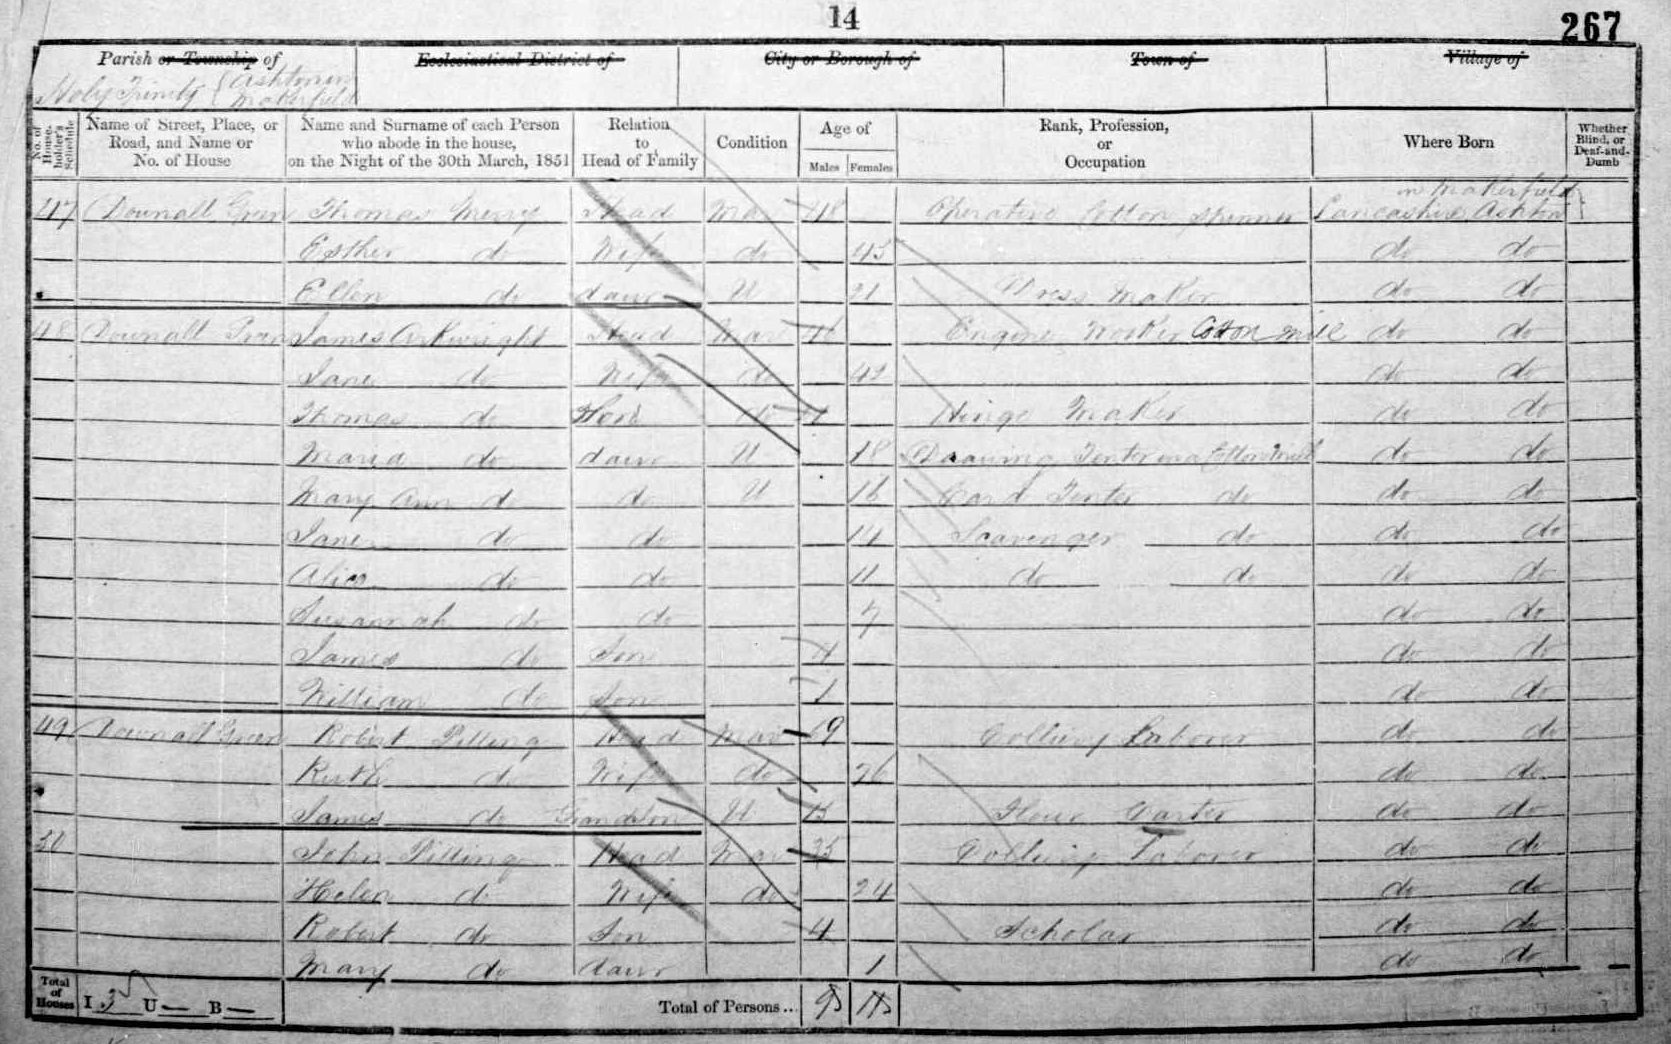 14
267
Parish or Township of
Ecclesiastical District of
City or Borough of
Town of
Village of
Holy Trinity { Ashton in Makerfield
No. of House-holder's Schedule
Name of Street, Place, or Road, and Name or No. of House
Name and Surname of each Person who abode in the house, on the Night of the 30th March, 1851
Relation to Head of Family
Condition
Age of
Males
Females
Rank, Profession, or Occupation
Where Born
Whether Blind, or Deaf-and-Dumb
in Makerfield
47 Downall Green Thomas Merry Head Mar 48 Operative Cotton Spinner Lancashire Ashton
Esther do Wife do 45 do do
Ellen do daur U 21 Dress Maker do do
48 Downall Green James Arkwright Head Mar 46 Engine Worker Cotton Mill do do
Jane do Wife do 42 do do
Thomas do Son do Hinge Maker do do
Maria do daur U 18 Drawing Tenter in a Cotton Mill do do
Mary Ann do do U 16 Card Tenter do do do
Jane do do 14 Scavenger do do do
Alice do do 11 do do do do
Susannah do do 7 do do
James do Son 4 do do
William do Son 1 do do
49 Downall Green Robert Pilling Head Mar Colliery Laborer do do
Ruth do Wife do 26 do do
James do Grandson U 15 Flour Carter do do
50 John Pilling Head Mar 25 Colliery Laborer do do
Helen do Wife do 24 do do
Robert do Son 4 Scholar do do
Mary do daur 1 do do
Total of Houses I 3 U — B —
Total of Persons...